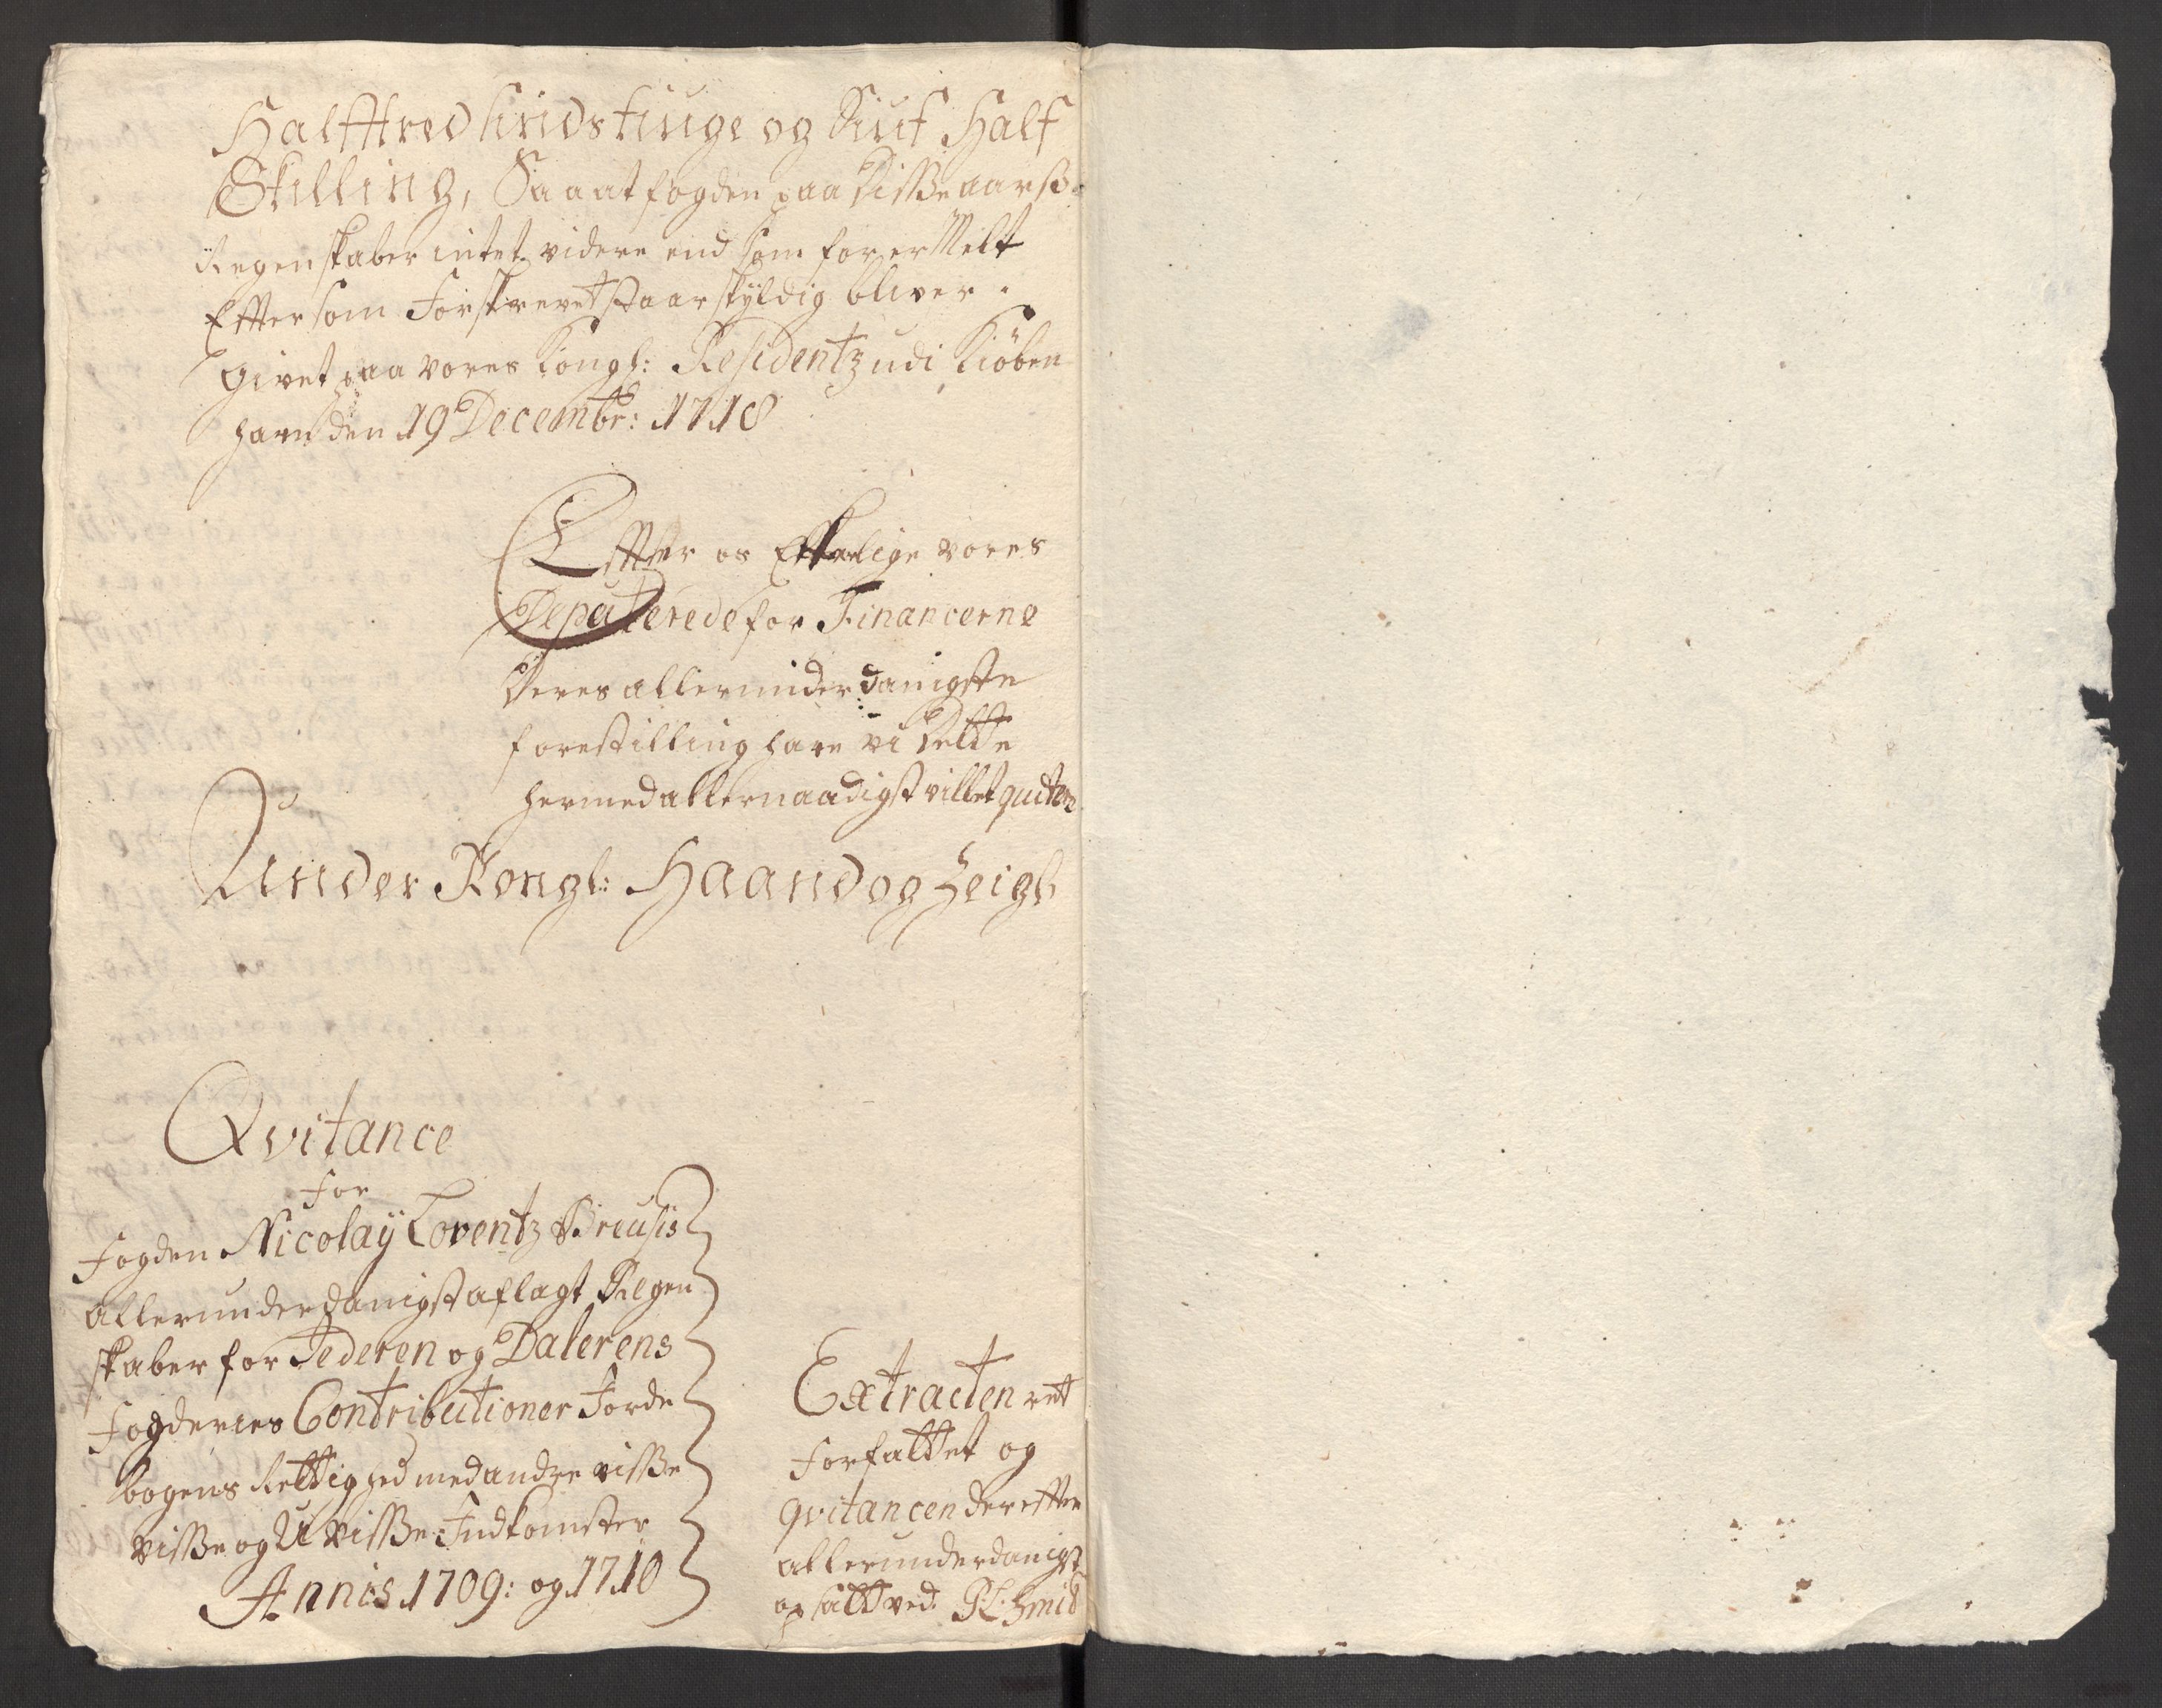 Halfftredsindstiuge og Siuf Half
Skilling, Saa at fogden paa disse aarß
Regenskaber intet videre end som for er Melt
Efftersom Forskrevet staar skÿldig bliver.
givet paa vores Kongl: Residentz udi Kiøben
havn den 19 Decembr: 1718
Effter os Elskelige vores
Deputerede for Financerne
Deres allerunderdanigste
forestilling have vi dette
hermed allernaadigst villet quitere
Under Kongl: Haand og Zeigl
Qvitance
For
Fogden Nicolaÿ Lorentz Breusis
allerunderdanigst aflagt Regen
skaber for Jederen og Dalerens
Fogderies Contributioner Jorde
bogens Rettighed med andre visse
visse og U visse Indkomster
Annis 1709: og 1710
Extracten ret
Forfattet og
qvitancen dereffter
allerunderdanigst
opsatt ved. PL. Smid